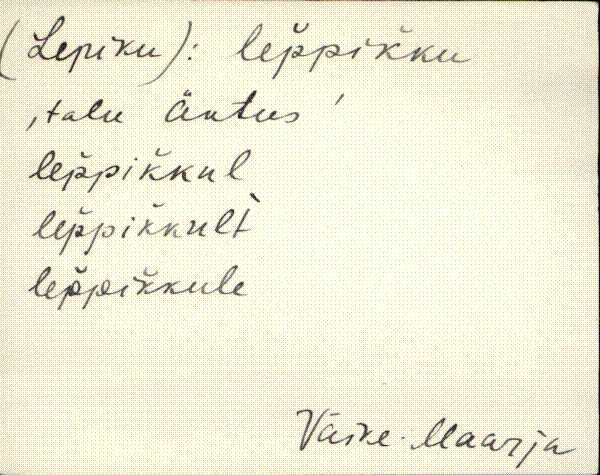 (Lepiku): lep̆pik̆ku
‚talu Äntus’
lep̆pik̆kul
lep̆pik̆kult̀
lep̆pik̆kule
Väike-Maarja